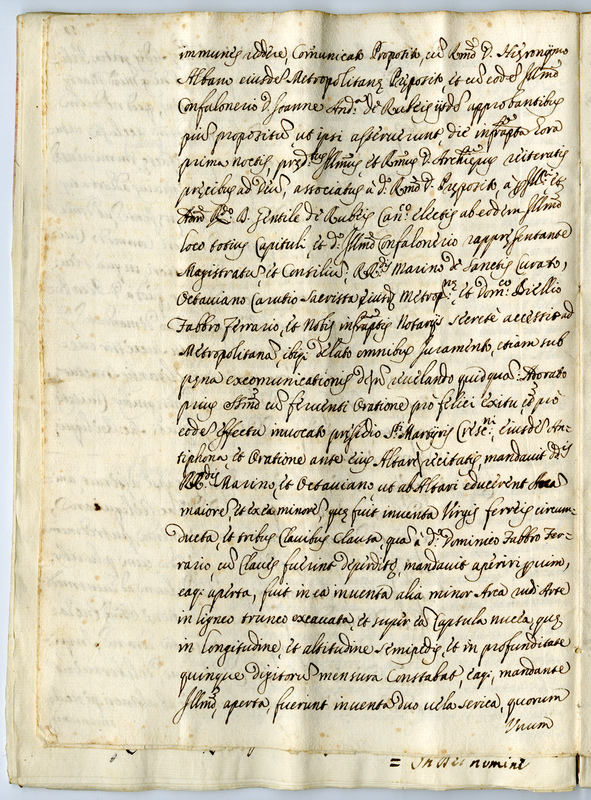 immunes reddere, Comunicato Proposito, cũ Rmo D. Hieronymo
Albano eiusdẽ Metropolitanę Preposito, et cũ eodẽ Illmo
Confalonerio D. Joanne And.ª de Rubeis ijsdẽ approbantibus
piũ propositũ, ut ipsi asseruerunt, die infrapta hora
prima noctis, pręd.tus Illmus, et Rmus D. Archiepus reiteratis
pręcibus ad Deũ, associatus à d.º Rmo D. Preposito, à et
D. Gentile de Rubeis Can.º electis ab eodem Illmo
loco totius Capituli, et d.º Illmo Confalonerio rappresentante
Magistratũ, et Consiliũ; RR.dis Marino de Sanctis Curato,
Octaviano Carutio Sacrista eiusdẽ Metrop.nę, et Dom.co Biellio
Fabbro Ferrario, et Nobis infraptis Notarijs secretè accessit ad
Metropolitanã, ibiq; delato omnibus Juramento, etiam sub
pęna excomunicationis de nõ revelando quidquã: Adorato
prius Ssmo cũ ferventi Oratione pro felici exitu, et pro
eodẽ effectu invocato pręsidio Sti Martyris Cresc.ni, eiusdẽ An-
tiphona, et Oratione ante eius Altare recitatis, mandavit d.is
RR.dis Marino, et Octaviano ut ab Altari educerent Arca
maiore, et ex ea minorẽ, quę fuit inventa Virgis ferreis circum-
ducta, et tribus Clavibus Clausa quã à d.º Dominico Fabbro Fer-
rario, cũ Claves fuerint deperditę, mandavit aperiri
eaq; aperta, fuit in ea inventa alia minor Arca rudi Arte
in ligneo trunco excavata, et super eã Capsula nucea, quę
in longitudine, et altitudine semipedis, et in profunditate
quinque digitorũ mensura Constabat eaq; mandante
Illmo, aperta, fuerunt inventa duo vela serica, quorum
Unum
= In Dei nomine